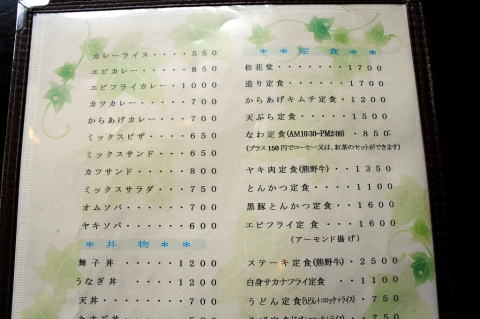 カレーライス・・・・５５０
エビカレー・・・・・８５０
エビフライカレー・１０００
カツカレー・・・・・７００
からあげカレー・・・７００
ミックスピザ・・・・６５０
ミックスサンド・・・６５０
カツサンド・・・・・８００
ミックスサラダ・・・７５０
オムソバ・・・・・・７００
ヤキソバ・・・・・・６００
＊丼 物＊＊
舞子丼・・・・・１２００
うなぎ丼・・・・１２００
天丼・・・・・・・７００
＊＊定 食＊＊
松花堂・・・・・・１７００
造り定食・・・・・１７００
からあげキムチ定食・１２００
天ぷら定食・・・・１５００
なわ定食(AM10:30-PM2:00)・８５０
(プラス150円でコーヒー又は、紅茶のセットができます)
ヤキ肉定食(熊野牛)・・１３５０
とんかつ定食・・・１１００
黒豚とんかつ定食・１６００
エビフライ定食・・・１６００
(アーモンド揚げ)
ステーキ定食(熊野牛)・２５００
白身サカナフライ定食・・１１００
うどん定食(うどん+コロッケ+ライス)・７５０